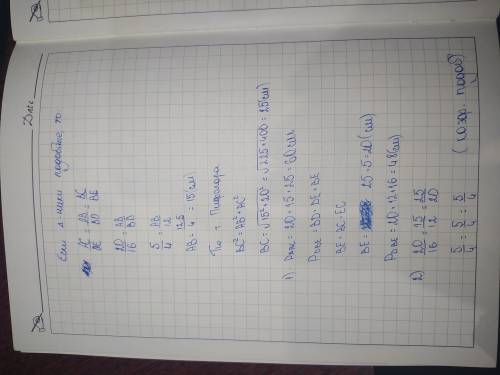 Date
Если Δ-ники подобные, то
AC/DE = AB/BD = BC/BE
20/16 = AB/BD
5/4 = AB/12
AB = 4 = 15(см)
По т Пифагора
BC² = AB² + AC²
BC = √15² + 20² = √225 + 400 = 25(см)
1) P = 20 + 15 + 25 = 60 см
P = BD + DE + BE
BE = BC - EC
BE = 25 - 5 = 20 (см)
P = 20 + 12 + 16 = 48(см)
2) 20/16 = 15/12 = 25/20
5/4 = 5/4 = 5/4